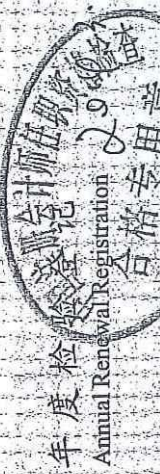 年度检验登记
Annual Renewal Registration
注册会计师任职资格检查
合格专用章